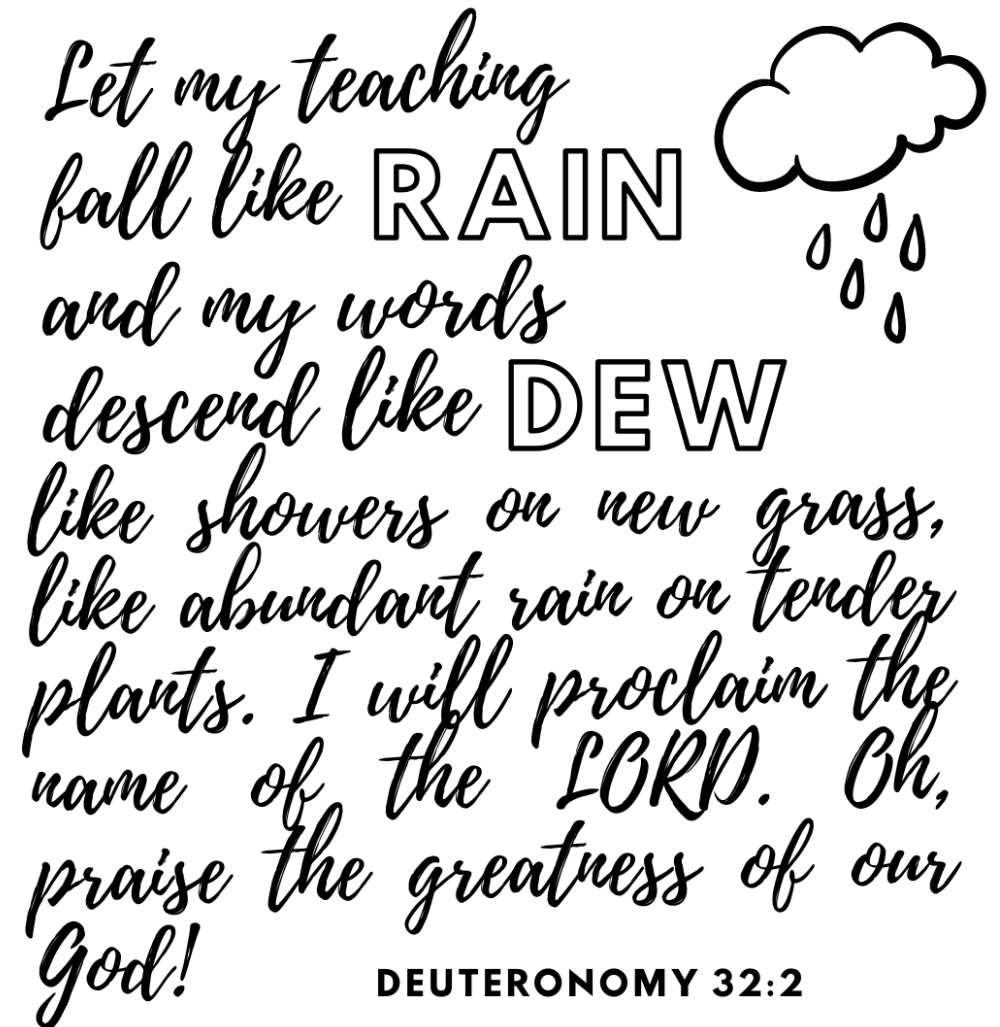 Let my teaching
fall like RAIN
and my words
descend like DEW
like showers on new grass,
like abundant rain on tender
plants. I will proclaim the
name of the LORD. Oh,
praise the greatness of our
God!
DEUTERONOMY 32:2